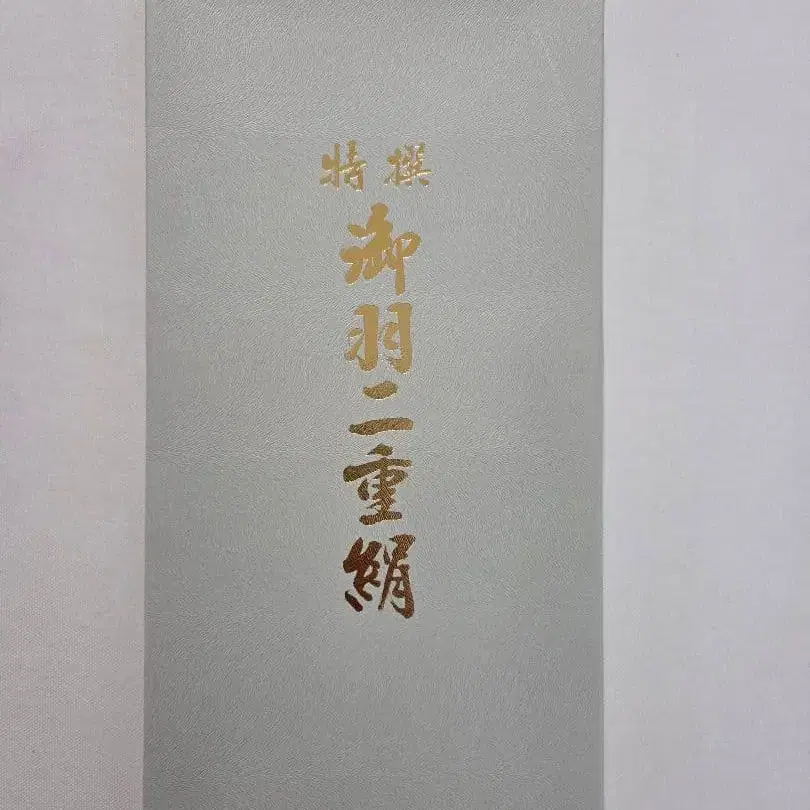 特撰
御羽二重絹